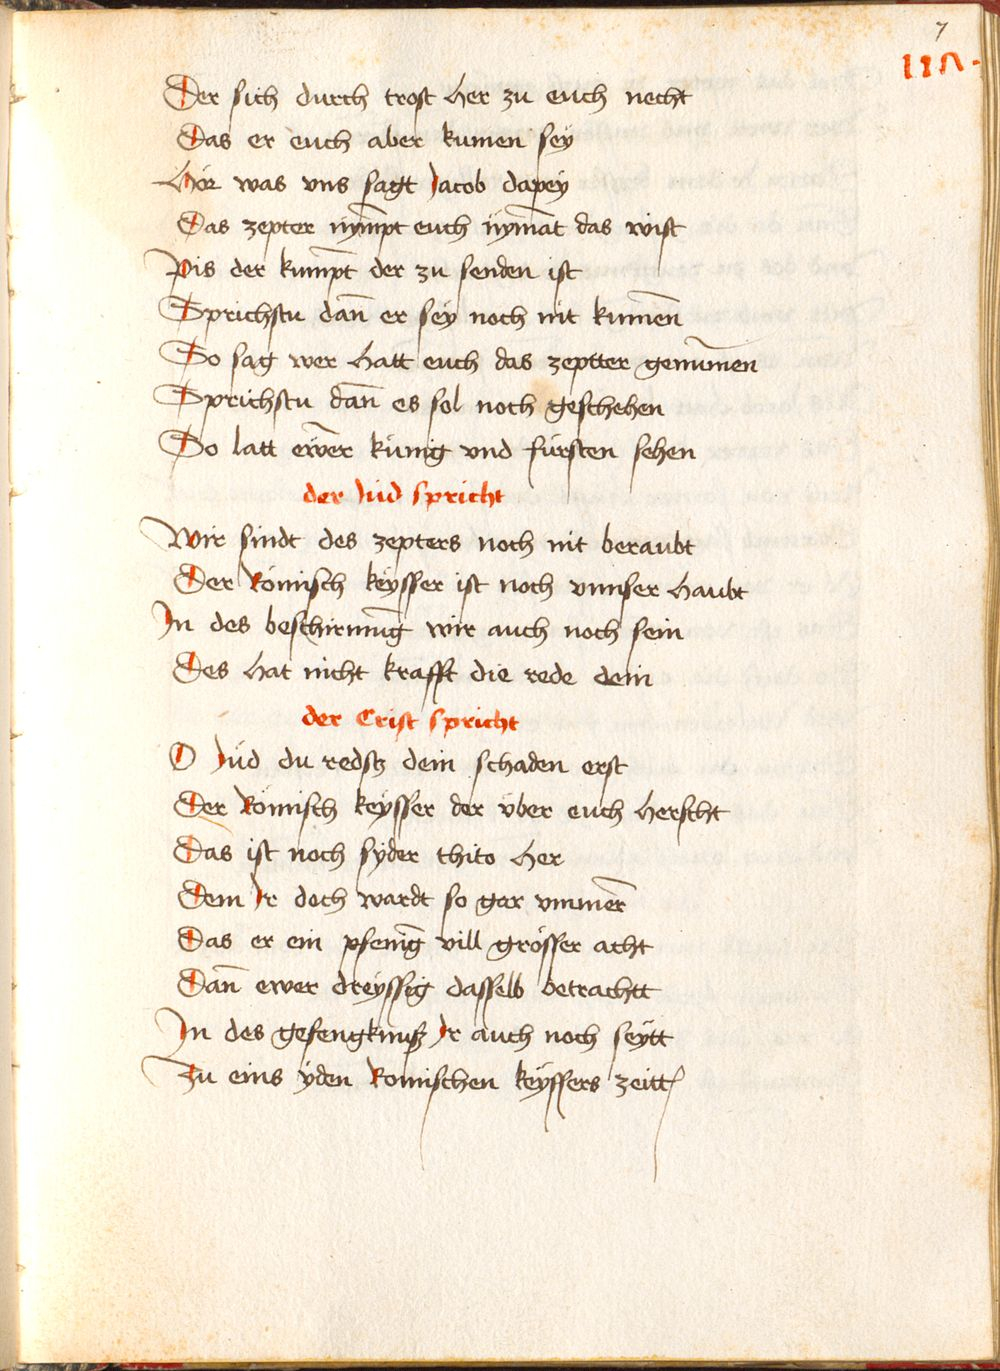 7
Der sich durch trost her zu euch necht
Das er euch aber kumen sey
Hör was vns sagt Jacob dapey
Das zepter nym̄pt euch nyman̄t das wist
Pis der kum̄pt der zu senden ist
Sprichstu dan̄ er sey noch nit kumen̄
So sag wer hatt euch das zeptter genum̄en
Sprichstu dan̄ es sol noch geschehen
So latt ewer̄ künig vnd fürsten sehen
der Jüd spricht
Wir sindt des zepters noch nit beraubt
Der Römisch keÿsser ist noch vnnser haubt
In des beschirmūg wir auch noch sein
Des hat nicht krafft die rede dein
der Crist spricht
O Jüd du redst dein schaden erst
Der Römisch keÿsser der über euch herscht
Das ist noch sÿder thito her
Dem Ir doch wardt so gar vnmer̄
Das er ein pfeniḡ vill grösser acht
Dan̄ ewer dreÿssig dasselb betrachtt
In des gefengknuß Ir auch noch seÿtt
Zu eins ÿden Romischen keÿssers zeitt